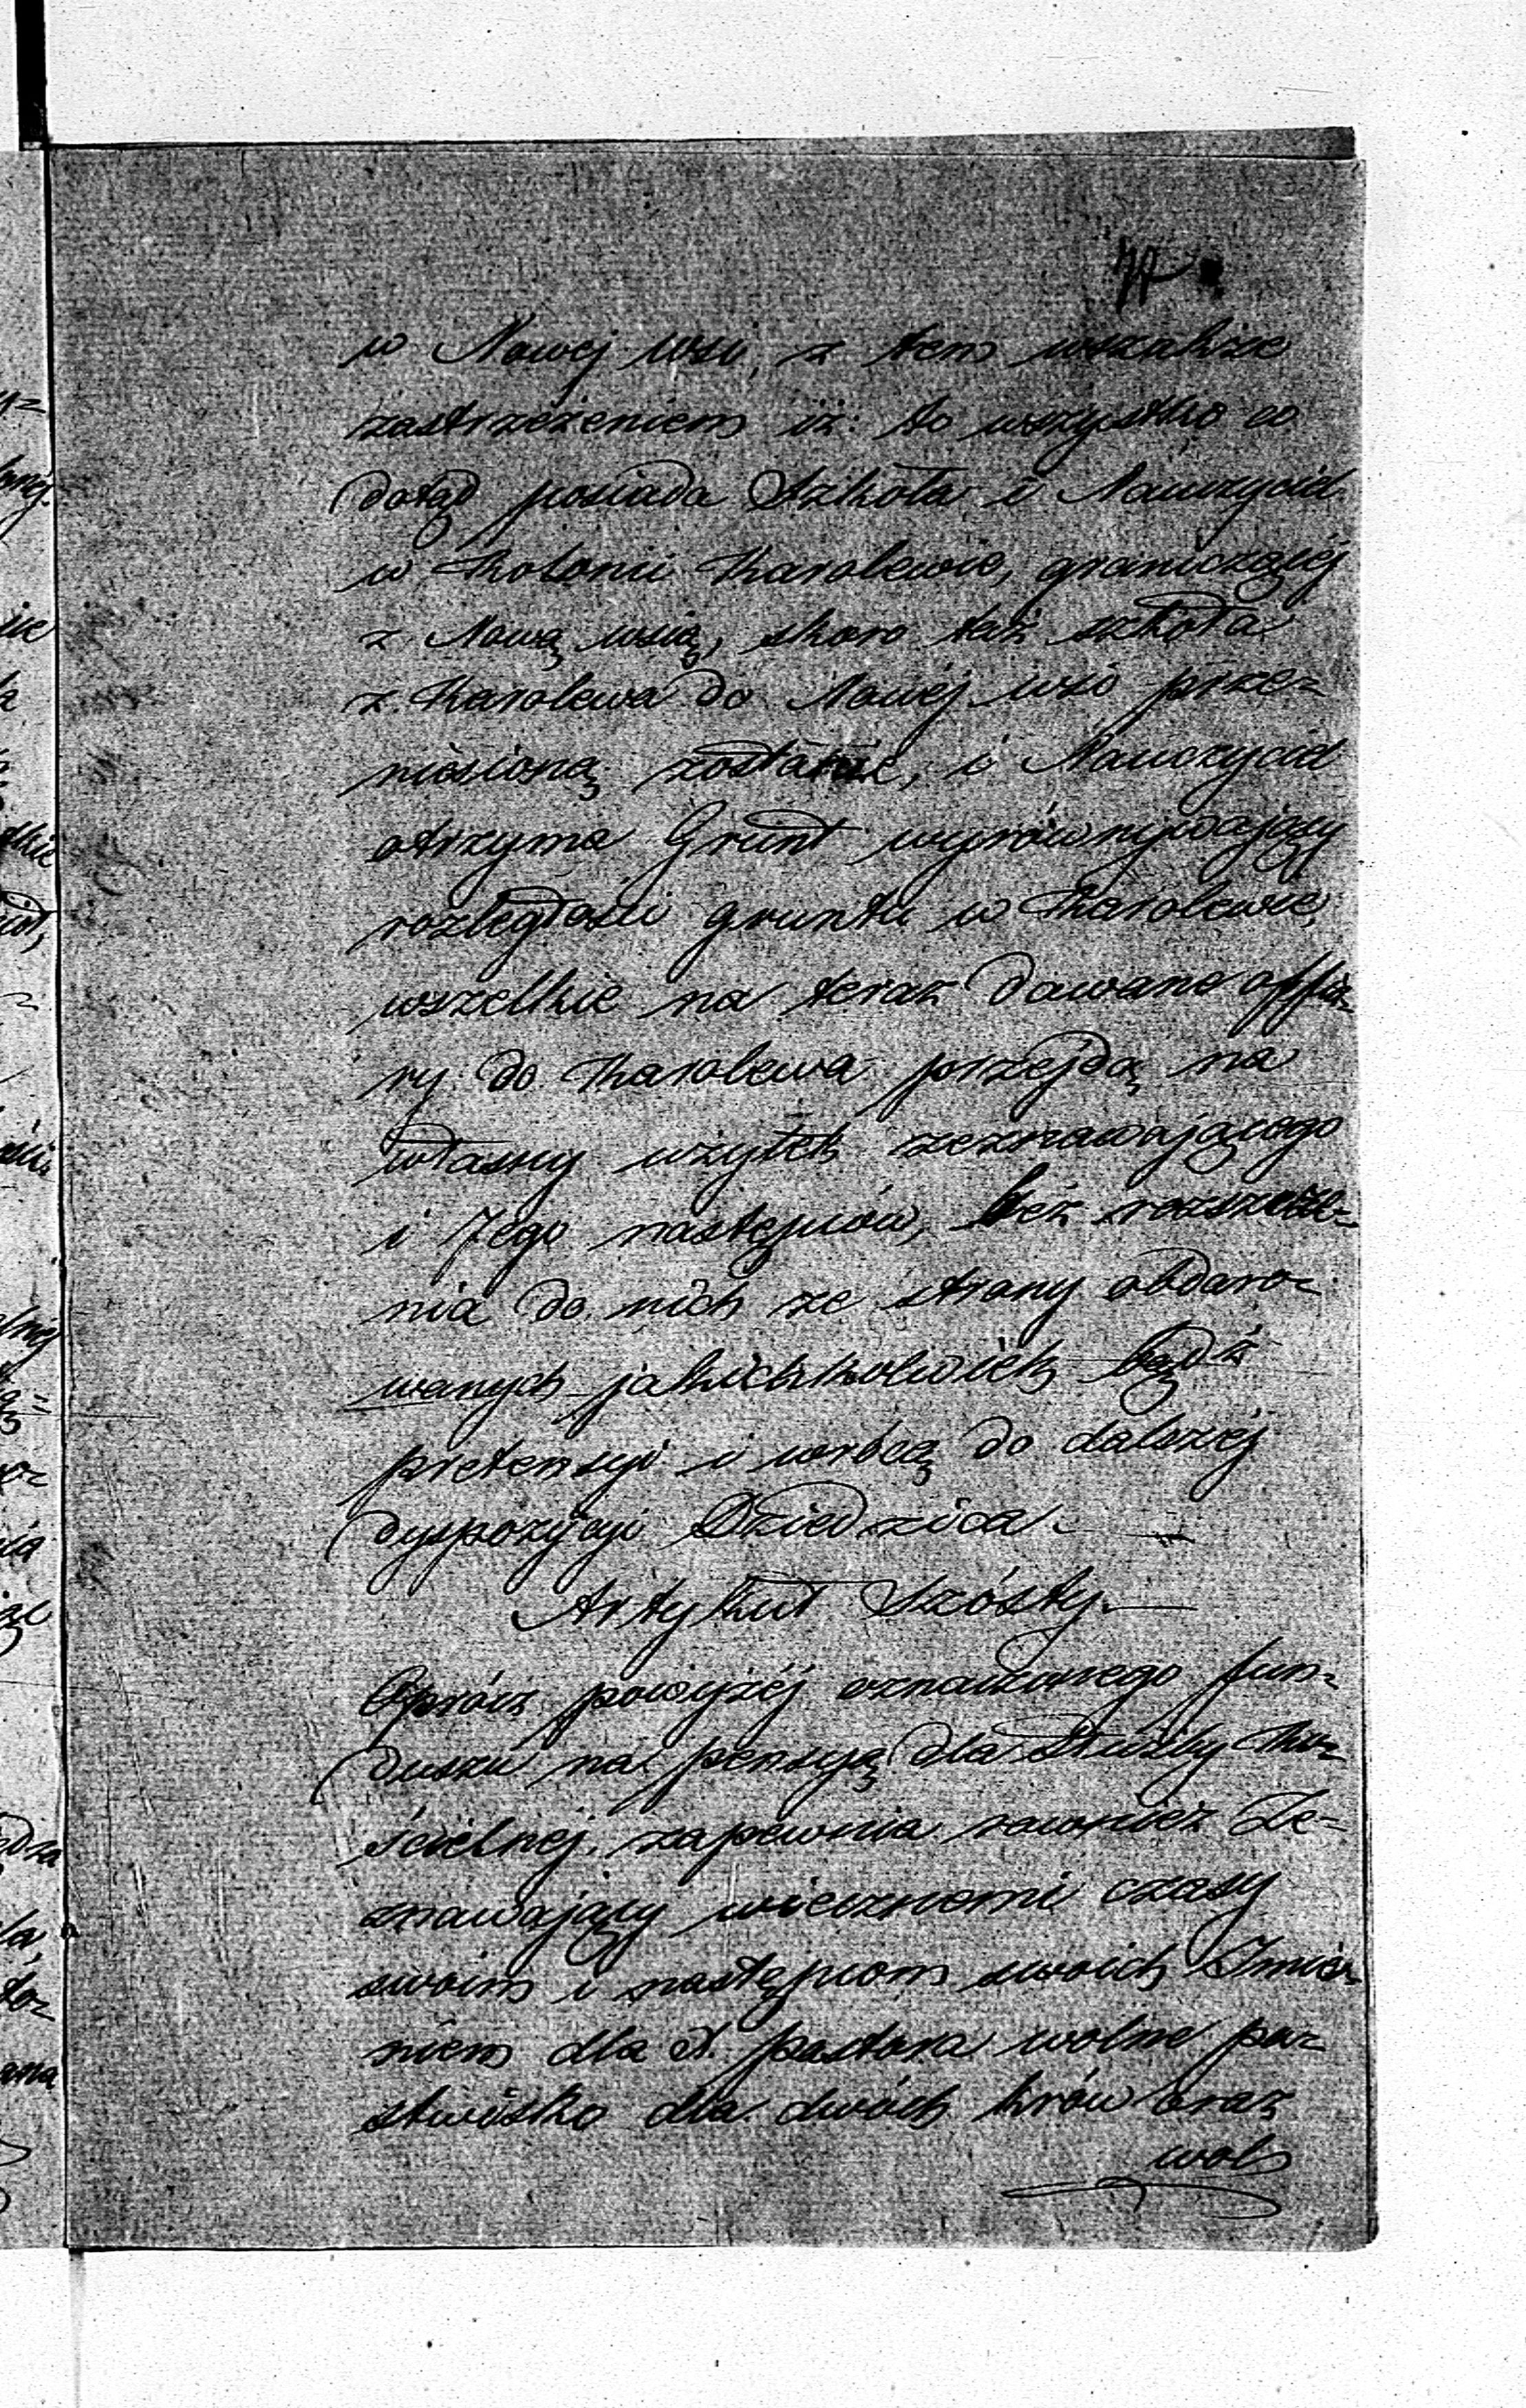 w Nowej wsi, z tem wszakże
zastrzeżeniem iż: to wszystko co
dotąd posiada Szkoła i Nauczyciel
w Kolonii Karolewie, graniczącéj
z Nową wsią, skoro taż szkoła
z Karolewa do Nowéj wsi prze=
niesioną zostanie, i Nauczyciel
otrzyma Grunt wyrównywający
rozległości gruntu w Karolewie,
wszelkie na teraz dawane offia-
ry do Karolewa przejdą na
własny użytek zeznawającego
i Jego następców, bez roszcze=
nia do nich ze strony obdaro-
wanych jakichkolwiek bądź
pretensyi i wrócą do dalszéj
dyspozycyi Dziedzica. —
Artykuł Szósty. —
Oprócz powyżéj oznaczonego fun-
duszu na pensyą dla Służby Ko-
ścielnéj, zapewnia rownież Ze=
znawający wiecznemi czasy
swoim i następcom swoich Imie-
niem dla X. pastora wolne pa-
stwisko dla dwóch krów oraz
wol